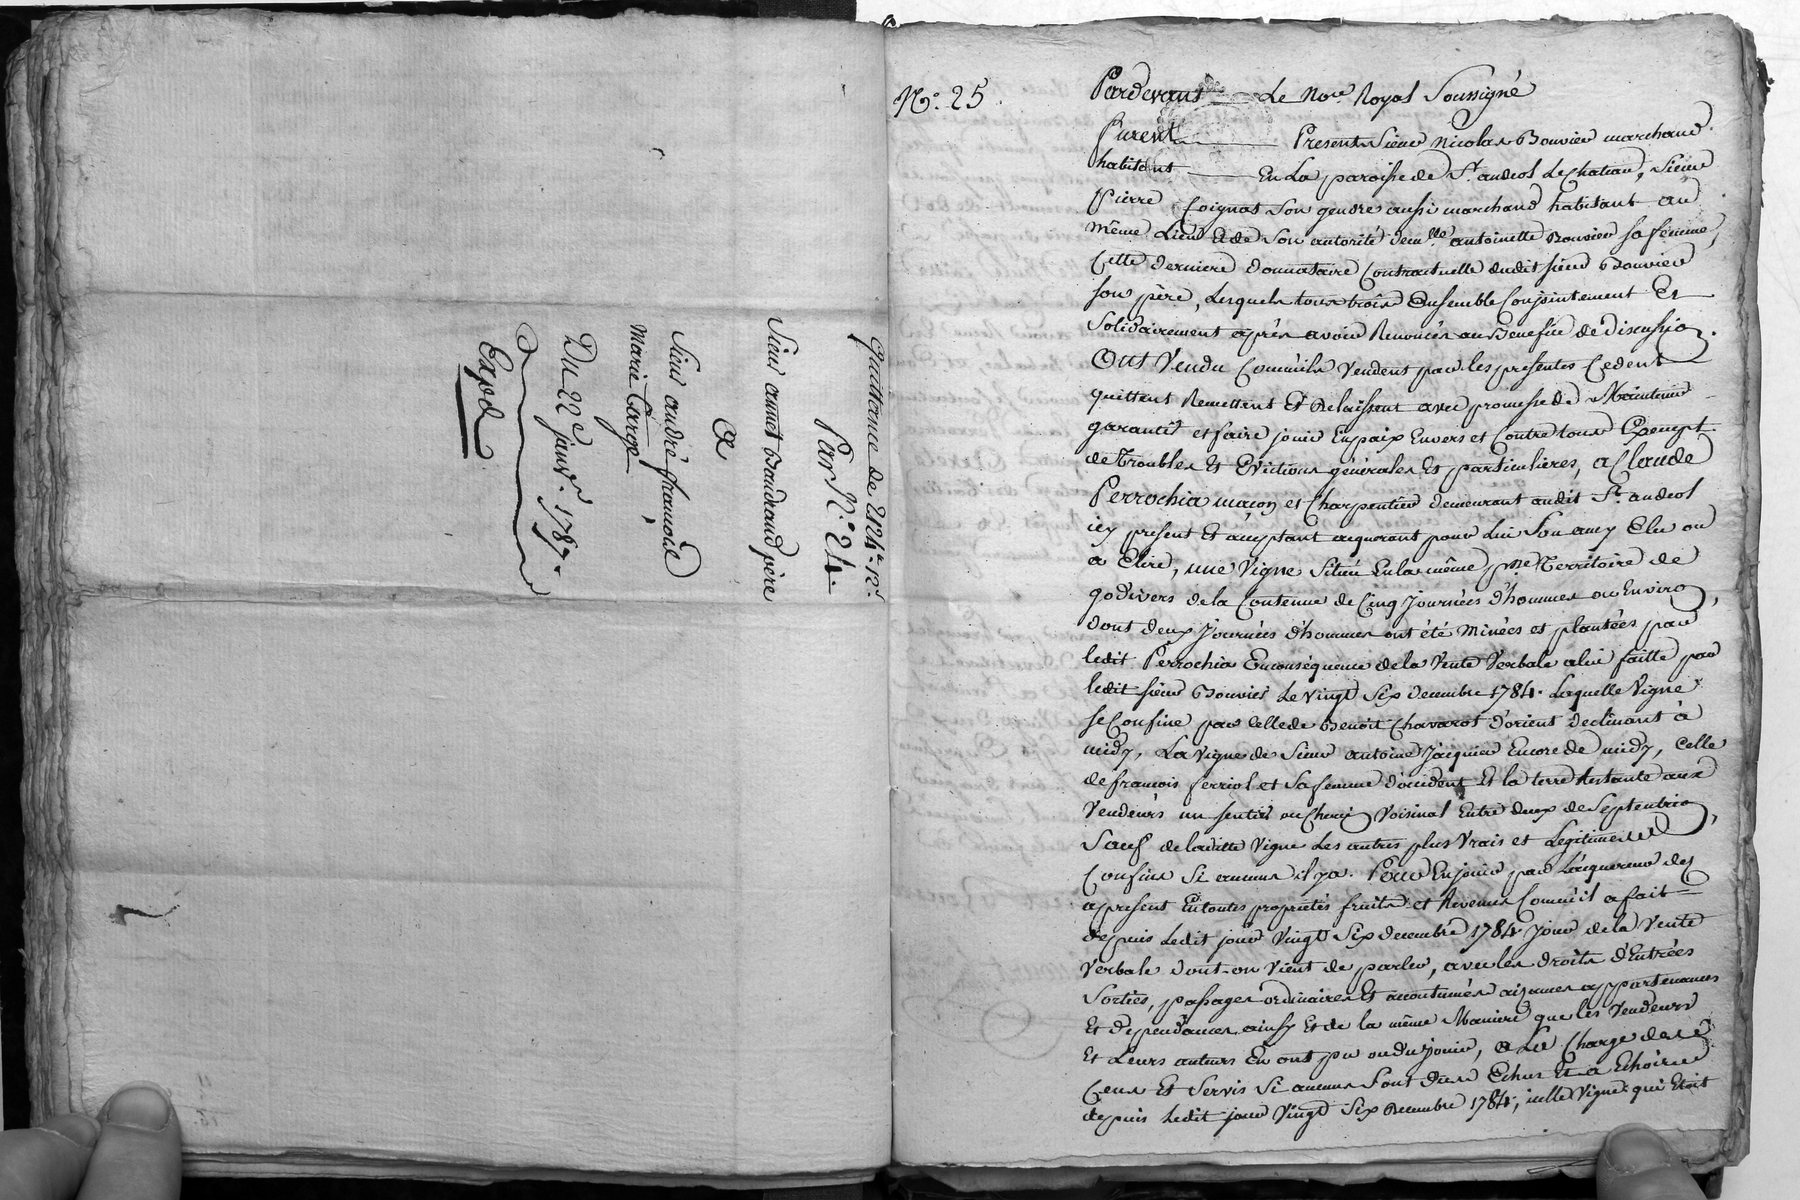 quittance de 212₶ 12ˢ
Par N.° 24.
Sieur annet Baudrand père
a
Sieur andré francois
Marie Caroge
Du 22e janvr. 1787.
Expd.
N.° 25
Pardevant Le Nore. Royal Soussigné
Furent Presents Sieur Nicolas Bouvier marchand
habitant En La paroisse de St. andeol Le Chateau, Sieur
Pierre Coignat Son gendre aussi marchand habitant au
même Lieu Et de Son autorité demlle. antoinette Bouvier sa femme,
Cette derniere donnataire Contractuelle dudit sieur Bouvier
son père, Lesquels tous trois Ensemble Conjointement Et
Solidairement après avoir Renoncés au Benefice de discussion.
Ont Vendu Comm'ils Vendent par les presentes Cedent
quittent Remettent Et Relaissent avec promesse de Maintenir
garantir et faire jouir En paix Envers et Contre tous Exempt
de troubles Et Evictions générales Et particulieres, a Claude
Perrochia maçon et Charpentier demeurant audit St. andeol
icy present Et acceptant acquerant pour Lui Son amy Elu ou
a Elire, une Vigne Située En la même psse. Territoire de
godivers de la Contenue de Cinq Journées d'hommes ou Environ,
dont deux Journées d'hommes ont été Minées et plantées par
ledit Perrochia En conséquence de la Vente Verbale a lui faitte par
ledit sieur Bouvier Le vingt Six decembre 1784. Laquelle Vigne
se Confine par celle de Benoit Chavarot d'orient declinant à
midy, La Vigne de Sieur antoine Jacquier Encore de midy, celle
de francois ferriol et Sa femme d'occident Et la terre Restante aux
Vendeurs un sentier ou Chemin Voisinal Entre deux de Septentrion,
Sauf de laditte Vigne Les autres plus Vrais et Legitimes
Confins Si aucuns il y a. Pour En jouir par L'acquereur des
apresent En toutes proprietés fruits et Revenus Comm'il a fait
depuis Ledit jour Vingt Six decembre 1784 Jour de la Vente
Verbale dont-on Vient de parler, avec les droits d'Entrées
Sorties, passages ordinaires Et accoutumés aizances appartenances
Et dependances ainsy Et de la même Maniere que les Vendeurs
Et Leurs auteurs En ont pu ou du jouir, a La Charge de
Cens Et Servis Si aucuns Sont dus Echus Et a Echoir
depuis Ledit jour Vingt Six decembre 1784, icelle Vigne qui Etoit